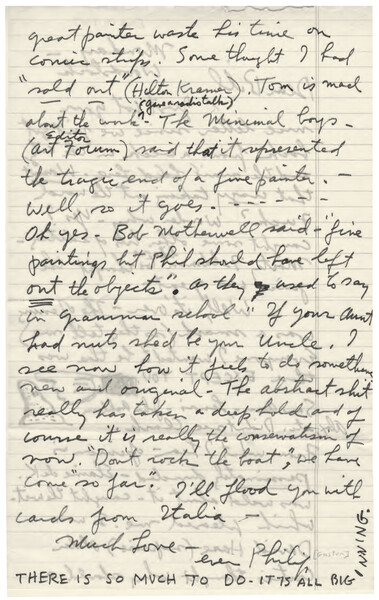 great painter waste his time on
comic strips. Some thought I had
"sold out" (Hilton Kramer). Tom is mad
(gave a radio talk)
about the work. The Minimal boys -
Editor
(Art Forum) said that it represented
the tragic end of a fine painter. -
Well, so it goes. - - - - - -
Oh yes - Bob Motherwell said - "fine
paintings but Phil should have left
out the objects". As they used to say
in grammar school "If your Aunt
had nuts she'd be your Uncle. I
see now how it feels to do something
new and original - The abstract shit
really has taken a deep hold and of
course it is really the conservatism of
now. "Don't rock the boat", we have
come "so far". I'll flood you with
cards from Italia -
Much Love -
ever Philip
THERE IS SO MUCH TO DO - IT IS ALL BIG'NNING.